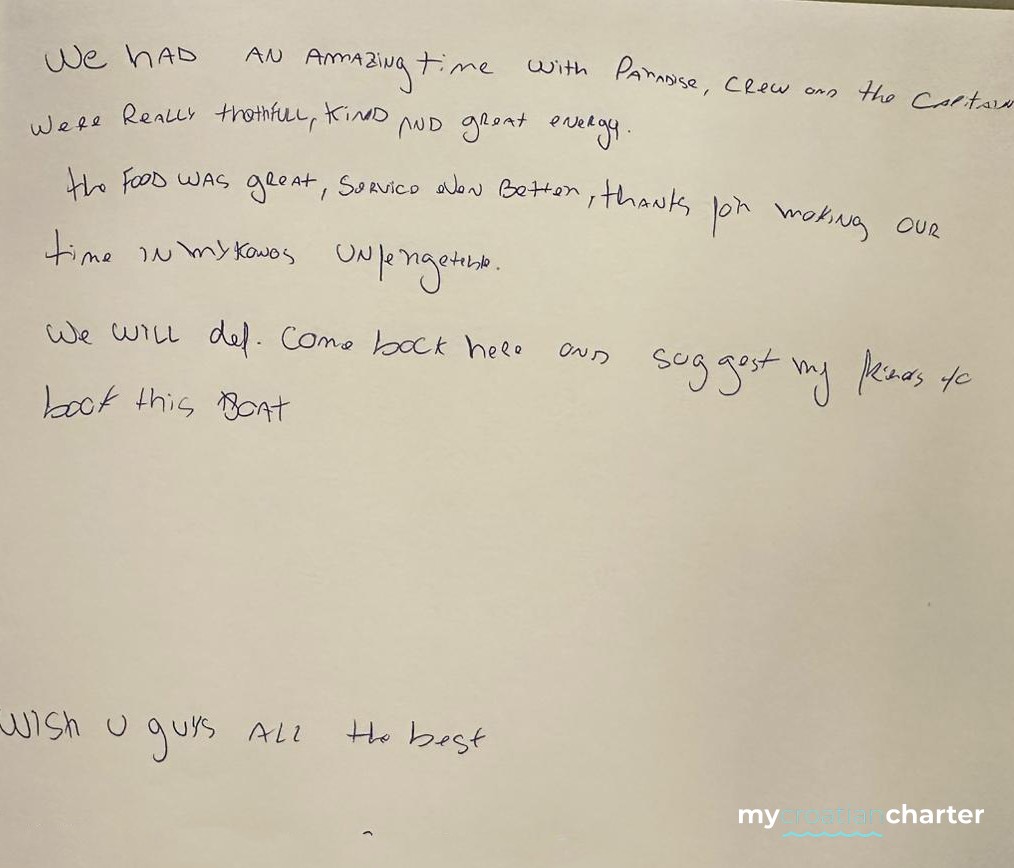 We hAD AN AmAzing time with PARADise, Crew AND the CApitAiN
Were REALLY thothfuLL, KIND AND gReAt eneRgy.
the FOOD WAS gReAt, SeRvice even Better, thANKS foR mAKiNg OUR
time IN MyKonos
We WILL def. Come bAcK heRe AND suggest my to
this BOAt
WISh U guys ALL the best
mycroatiancharter